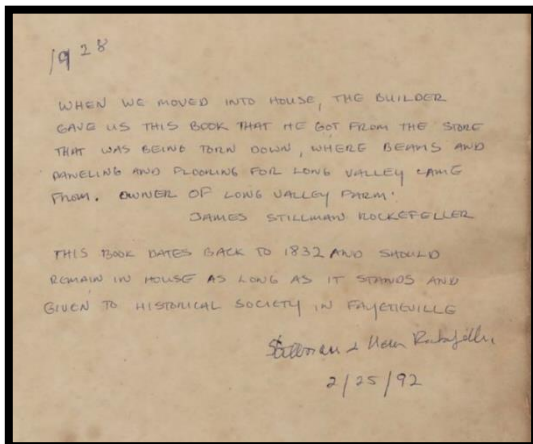 1928
WHEN WE MOVED INTO HOUSE, THE BUILDER
GAVE US THIS BOOK THAT HE GOT FROM THE STORE
THAT WAS BEING TORN DOWN, WHERE BEAMS AND
PANELING AND FLOORING FOR LONG VALLEY CAME
FROM. OWNER OF LONG VALLEY FARM.
JAMES STILLMAN ROCKEFELLER
THIS BOOK DATES BACK TO 1832 AND SHOULD
REMAIN IN HOUSE AS LONG AS IT STANDS AND
GIVEN TO HISTORICAL SOCIETY IN FAYETTEVILLE
Stillman & Rockefeller
2/25/92